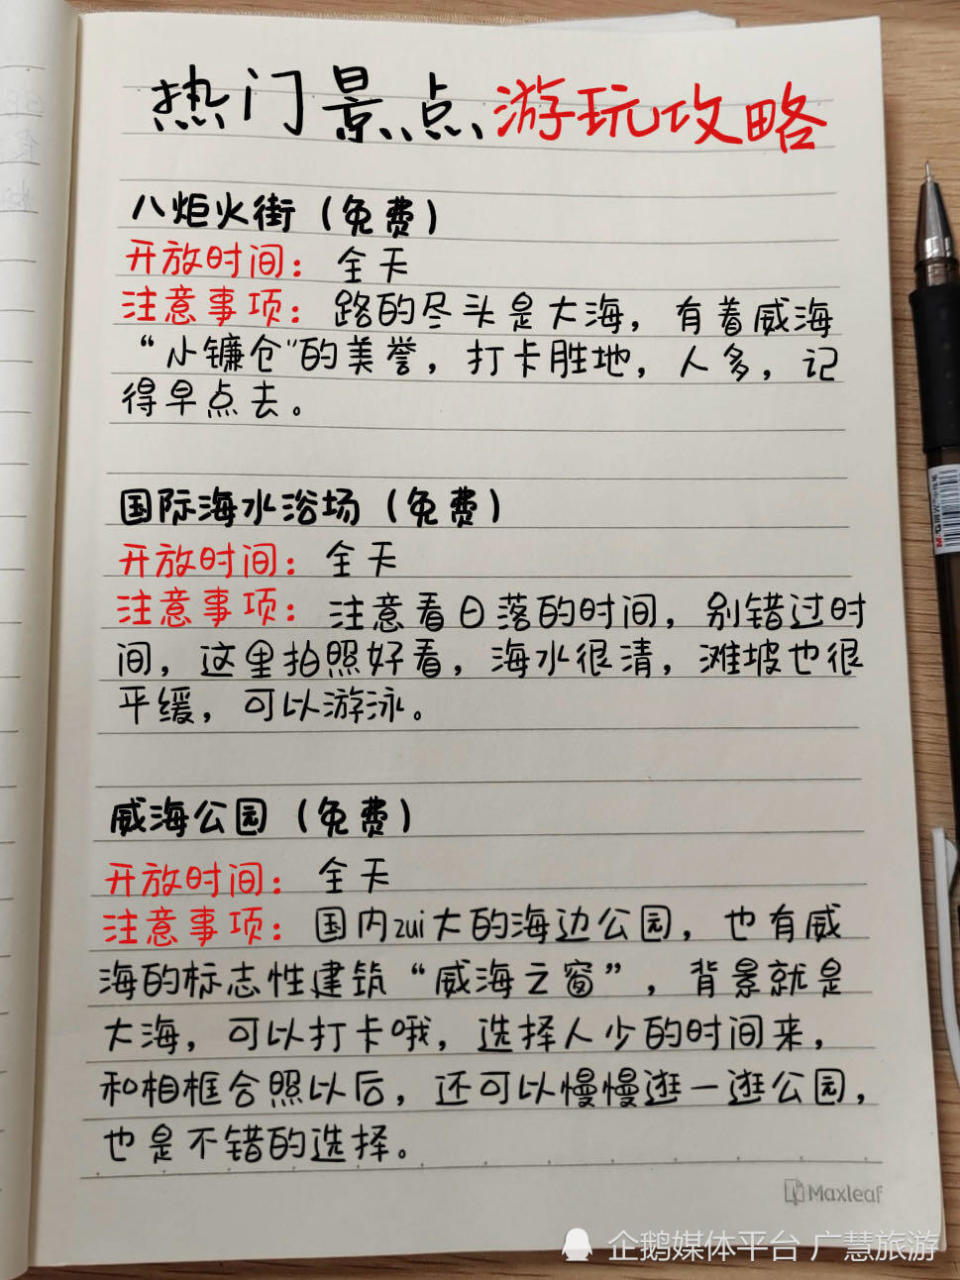 热门景点游玩攻略
八炬火街（免费）
开放时间：全天
注意事项：路的尽头是大海，有着威海
“小镰仓”的美誉，打卡胜地，人多，记
得早点去。
国际海水浴场（免费）
开放时间：全天
注意事项：注意看日落的时间，别错过时
间，这里拍照好看，海水很清，滩坡也很
平缓，可以游泳。
威海公园（免费）
开放时间：全天
注意事项：国内zui大的海边公园，也有威
海的标志性建筑“威海之窗”，背景就是
大海，可以打卡哦，选择人少的时间来，
和相框合照以后，还可以慢慢逛一逛公园，
也是不错的选择。
Maxleaf
企鹅媒体平台 广慧旅游